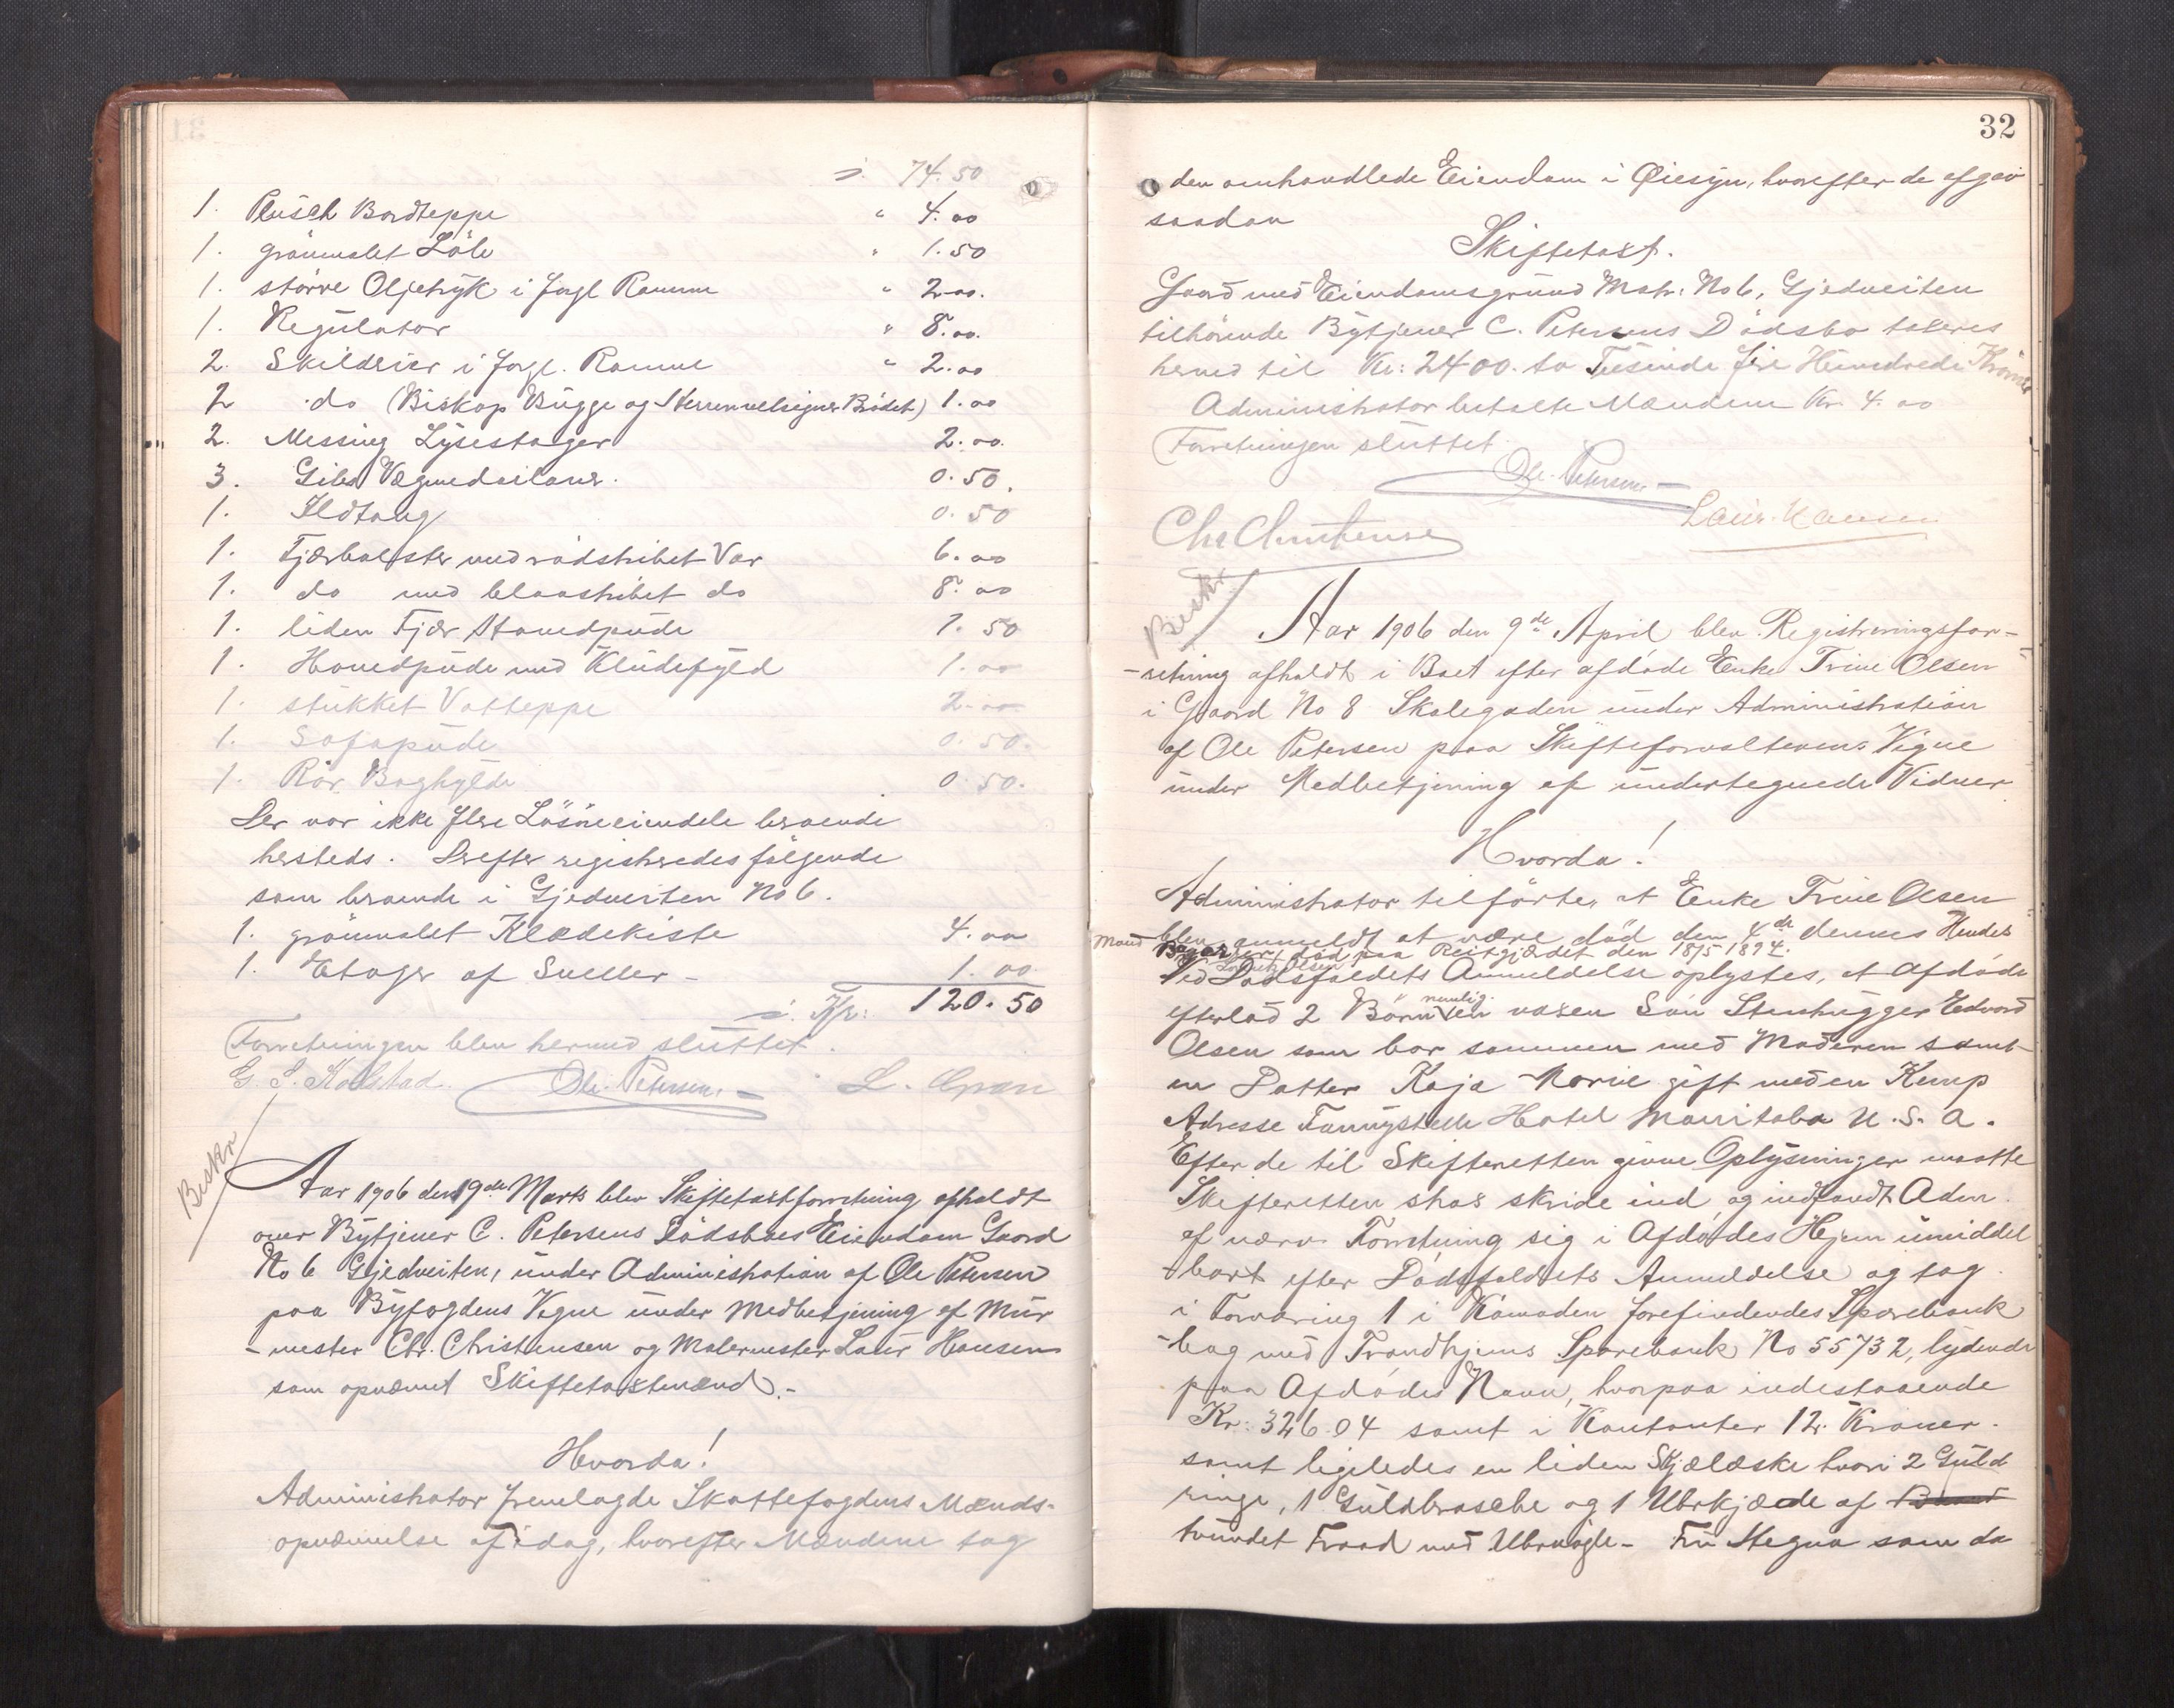 74.50
1. Plüsch Bordteppe " 4.00
1. grönmalet Löle " 1.50
1. större Oljetryk i forgl Ramme " 2.00.
1. Regulator " 8.00.
2. Skilderier i forgl. Ramme " 2.00
2 do (Biskop Bugge og Herren velsigner Brödet) 1.00
2. Messing Lysestager 2.00.
3. Gibs Vægmedailons. 0.50.
1. Ildtang 0.50
1. Fjærbolster med rödstribet Var 6.00
1. do med blaastribet do 8.00
1. liden Fjær Hovedpude 1.50
1. Hovedpude med Kludefyld 1.00
1. stukket Vatteppe 2.00
1. Sofapude 0.50.
1. Rör Boghylde 0.50.
Der var ikke flere Lösöreeiendele beroende
hersteds. Derefter registreredes fölgende
som beroende i Gjedveiten No 6.
1. grönmalet Klædekiste 4.00
1. Etager af Sneller - 1.00
Kr: 120.50
Forretningen blev hermed sluttet.
G. S. Kolstad. Ole Petersen. L. Gran
Beskr
Aar 1906 den 19de Marts blev Skiftetaxtforretning afholdt
over Bytjener C. Petersens Dödsboes Eiendom Gaard
No 6 Gjedveiten, under Administration af Ole Petersen
paa Byfogdens Vegne under Medbetjening af Mur
-mester Chr. Christensen og Malermester Laur Hansen
som opnævnt Skiftetaxtmænd.-
Hvorda!
Administrator fremlagde Skattefogdens Mænds-
opnævnelse af idag, hvorefter Mændene tog
32
den omhandlede Eiendom i Øiesyn, hvorefter de afgav
saadan
Skiftetaxt.
Gaard med Eiendomsgrund Matr: No 6, Gjedveiten
tilhörende Bytjener C. Petersens Dödsbo taxeres
herved til Kr: 2400. to Tusinde fire Hundrede Kroner
Administrator betalte Mændene Kr 4.00
Forretningen sluttet
Ole Petersen
Laur. Hansen
Chr Christensen
Beskr
Aar 1906 den 9de April blev Registreringsfor-
-retning afholdt i Boet efter afdöde Enke Trine Olsen
i Gaard No 8 Skolegaden under Administration
af Ole Petersen paa Skifteforvalterens Vegne
under Medbetjening af undertegnede Vidner
Hvorda!
Administrator tilförte, at Enke Trine Olsen
blev anmeldt at være död den 4de dennes Hendes
Mand död paa Reitgjædet den 18/5 1894.
Lorentz Olsen
Ved Dödsfaldets Anmeldelse oplystes, at Afdöde
efterlod 2 Börn nemlig en voxen Sön Stenhugger Edvard
Olsen som bor sammen med Moderen samt
en Datter Kaja Marie gift med en Kemp
Adresse Fannystelle Hotel Manitoba U.S.A.
Efter de til Skifteretten givne Oplysninger maatte
Skifteretten strax skride ind, og indfandt Adm.
af nærv. Forretning sig i Afdödes Hjem umiddel
-bart efter Dödsfaldets Anmeldelse og tog
i Forvaring 1 i Komoden forefindendes Sparebank
-bog med Trondhjems Sparebank No 55732, lydende
paa Afdödes Navn, hvorpaa indestaaende
Kr: 326.04 samt i Kontanter 12. Kroner.
samt ligeledes en liden Skjælæske hvori 2 Guld
ringe, 1 Guldbrosche og 1 Uhrkjæde af
tvundet Traad med Uhrnögle - Fru Stegna som da